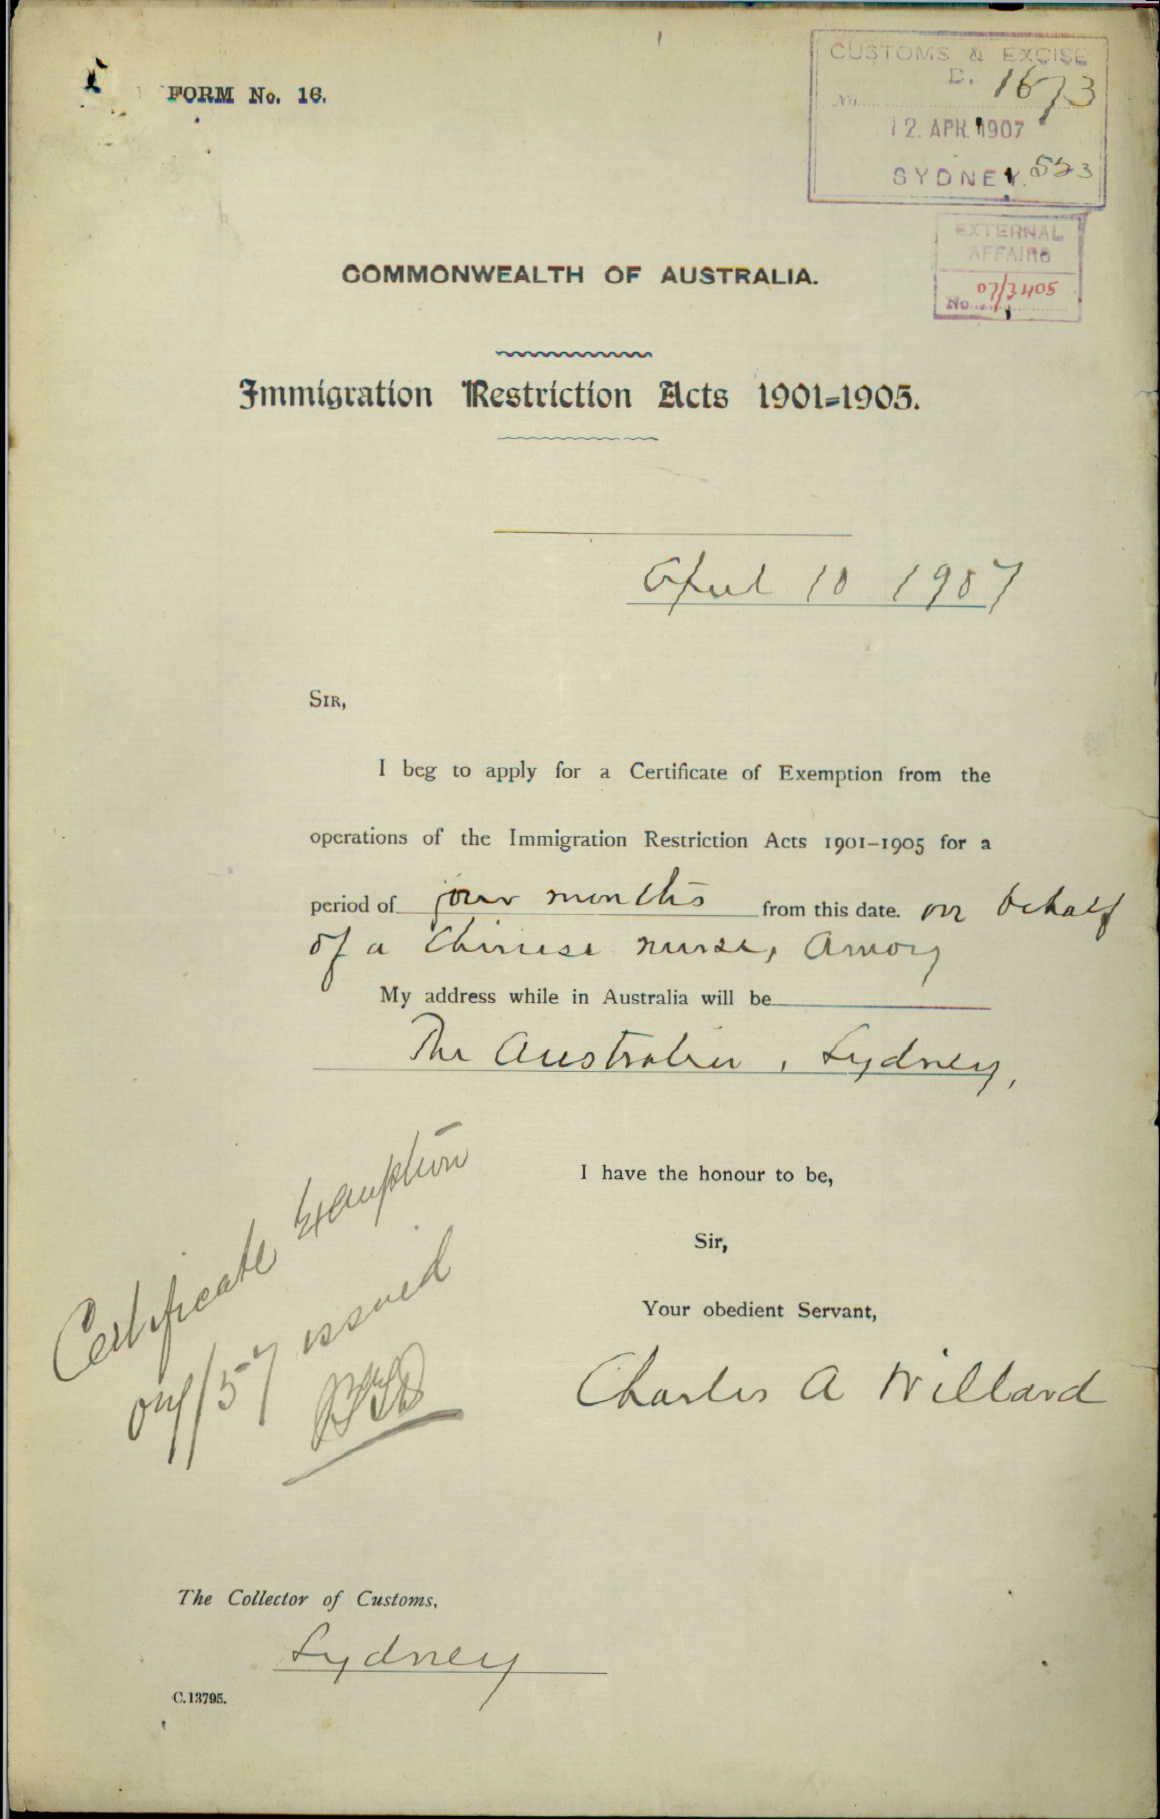 FORM No. 16.
CUSTOMS & EXCISE
D. 1673
No.
12. APR. 1907
SYDNEY. 523
EXTERNAL
AFFAIRS
07/3405
No.
COMMONWEALTH OF AUSTRALIA.
Immigration Restriction Acts 1901-1905.
April 10 1907
SIR,
I beg to apply for a Certificate of Exemption from the
operations of the Immigration Restriction Acts 1901–1905 for a
period of four months from this date. on behalf
of a Chinese nurse, Amoy
My address while in Australia will be
The Australia, Sydney,
I have the honour to be,
Sir,
Your obedient Servant,
Charles A Willard
Certificate Exemption
07/57 issued
The Collector of Customs,
Sydney
C.13795.